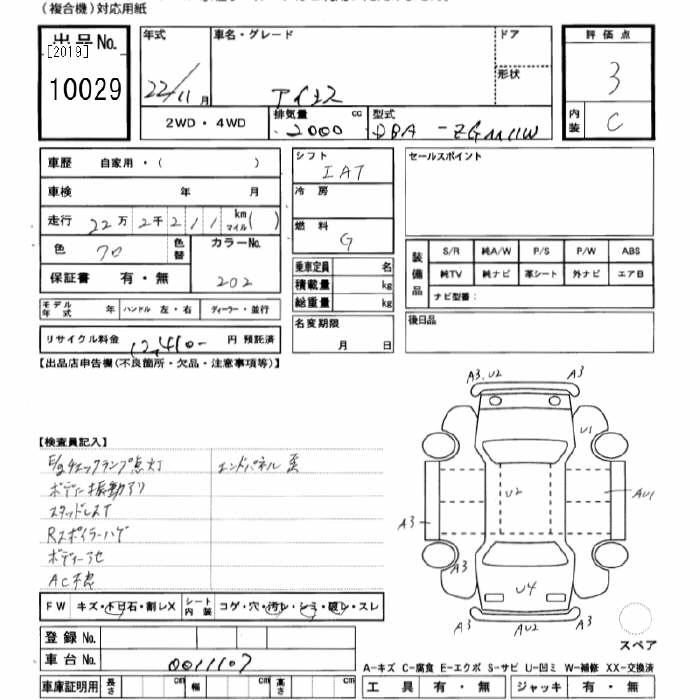 (複合機)対応用紙
出品No.
[2019]
10029
年式
22/11月
車名・グレード
アイシス
ドア
形状
評価点
3
内装
C
2WD・4WD
排気量 cc
2000
型式
DBA-ZGM11W
車歴 自家用・( )
車検 年 月
走行 22万2千211 km マイル( )
色 クロ 色替
カラーNo.
202
保証書 有・無
モデル年式 年 ハンドル 左・右 ディーラー・並行
リサイクル料金 12,410- 円 預託済
シフト
IAT
冷房
燃料
G
乗車定員 名
積載量 kg
総重量 kg
名変期限
月 日
セールスポイント
装備品
S/R 純A/W P/S P/W ABS
純TV 純ナビ 革シート 外ナビ エアB
ナビ型番:
後日品
【出品店申告欄(不良箇所・欠品・注意事項等)】
【検査員記入】
E/gチェックランプ点灯
エンドパネル歪
ボデー振動アリ
スタッドレスT
Rスポイラーハゲ
AC不良
A3.U2
A3
U1
U2
AU1
A3
A3
U4
A3
AU2
A3
スペア
FW キズ・水日石・割レX
シート内装 コゲ・穴・汚レ・シミ・破レ・スレ
登録No.
車台No.
0011107
車庫証明用 長さ cm 幅 cm 高さ cm
A−キズ C−腐食 E−エクボ S−サビ U−凹ミ W−補修 XX−交換済
工具 有・無 ジャッキ 有・無